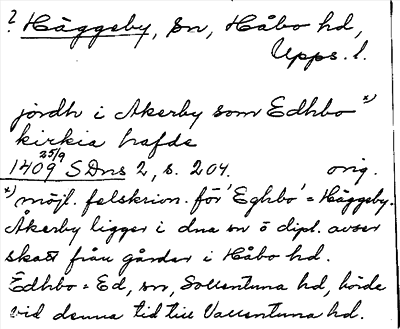 ? Häggeby, sn, Håbo hd,
Upps. l.
jordh i Akerby som Edhbo x)
kirkia hafde
25/9
1409 SDns 2, s. 204. orig.
x) möjl. felskrivn. för 'Eghbo' = Häggeby.
Åkerby ligger i dna sn o dipl. avser
skatt från gårdar i Håbo hd.
Edhbo = Ed, sn, Sollentuna hd, hörde
vid denna tid till Vallentuna hd.